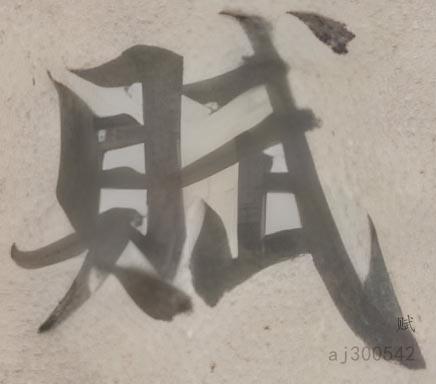 賦
赋
aj300542